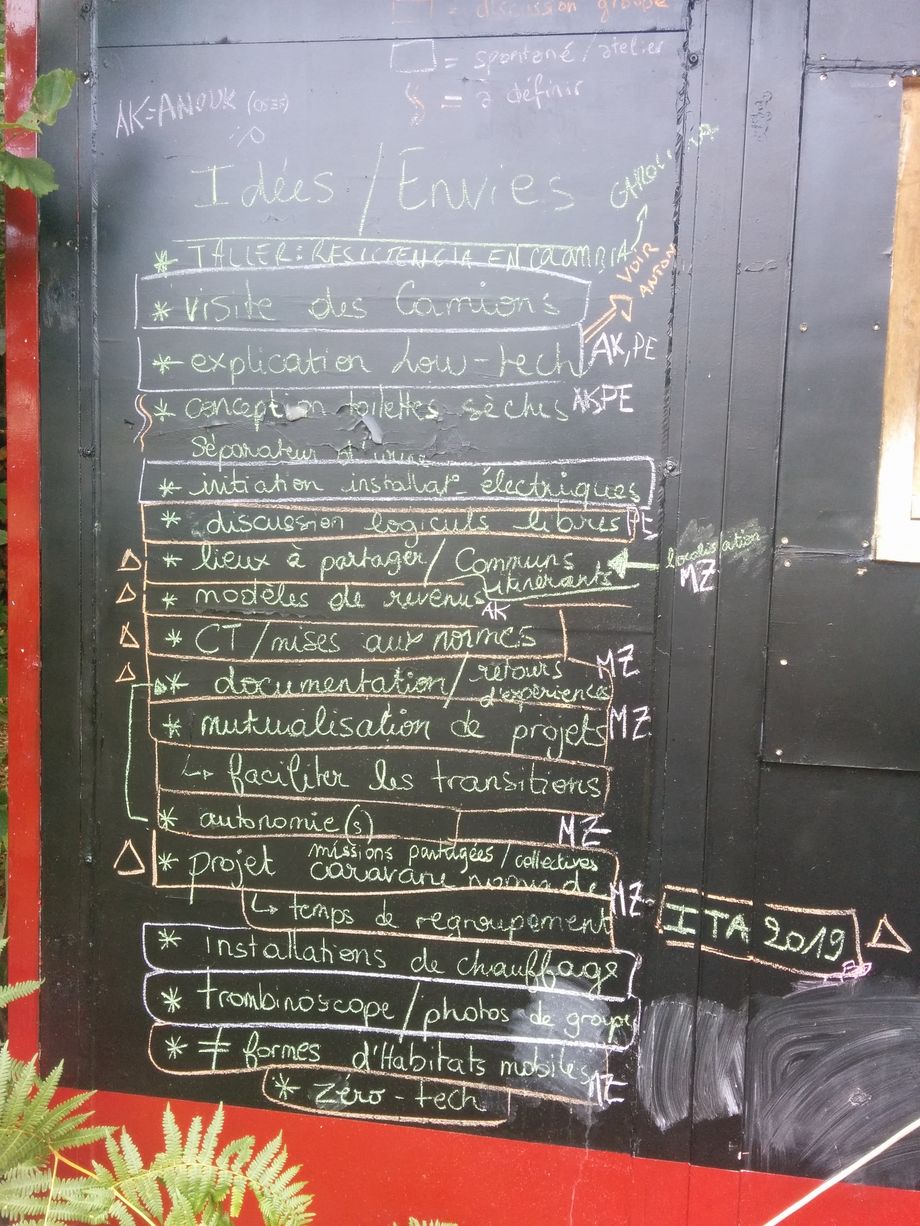 = discussion groupe
= spontané/atelier
= à définir
AK=ANOUK
Idées / Envies
CAROLINA
* TALLER: RESISTENCIA EN
VOIR
ANTON
* visite des Camions
* explication low-tech AK, PE
* conception toilettes sèches AK, PE
séparateur d'urine
* initiation installat° électriques
* discussion logiciels libres PE
* lieux à partager/ Communs localisation
itinérants MZ
* modèles de revenus AK
* CT/mises aux normes
* documentation/retours MZ
d'expériences
* mutualisation de projets MZ
↳ faciliter les transitions
* autonomie(s) MZ
missions partagées/collectives
* projet caravane nomade
↳ temps de regroupement MZ
ITA 2019
* installations de chauffage
* trombinoscope/photos de groupe
* ≠ formes d'Habitats mobiles MZ
* zéro-tech